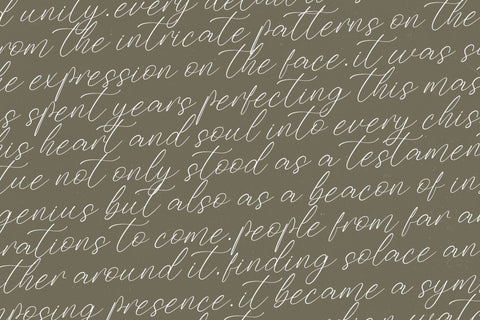 unity.every detail
from the intricate patterns on the
expression on the face.it was
spent years perfecting this
his heart and soul into every
not only stood as a
genius but also as a beacon of
to come.people from far
around it.finding solace
presence.it became a